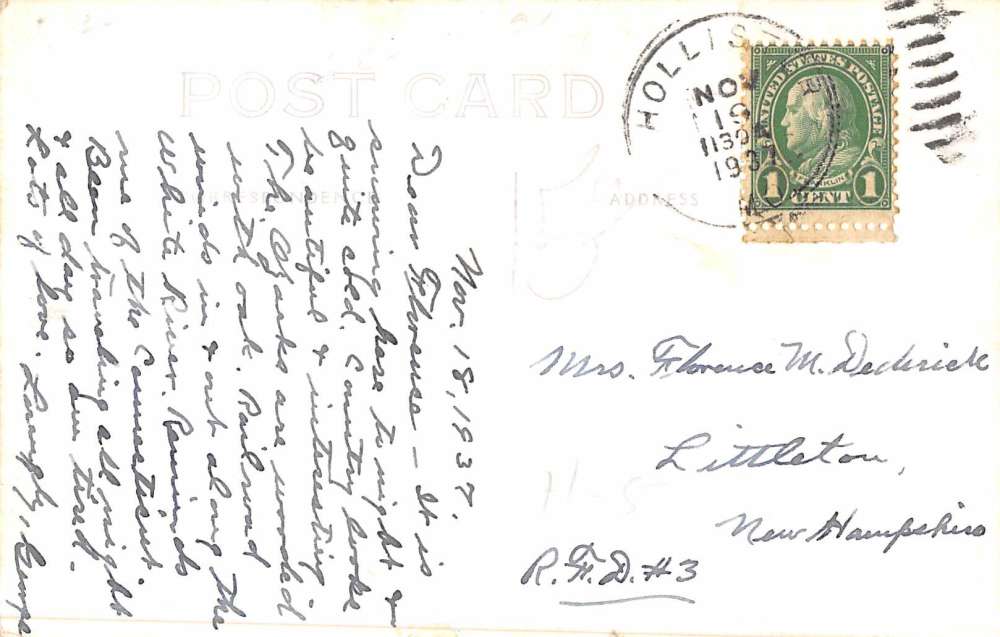 POST CARD
CORRESPONDENCE
ADDRESS
HOLLIS
NOV
19
1130A
1937
UNITED STATES POSTAGE
FRANKLIN
1 CENT 1
Nov. 18, 1937.
Dear Florence – It is
snowing here to-night &
quite cold. Country looks
beautiful & interesting
The Ozarks are wooded
with oak. Railroad
winds in & out along the
White River. Reminds
me of the Connecticut.
Been traveling all night
& all day so am tired.
Lots of love. Lovingly,
Mrs. Florence M. Dederick
Littleton,
New Hampshire
R.F.D. #3
11-5